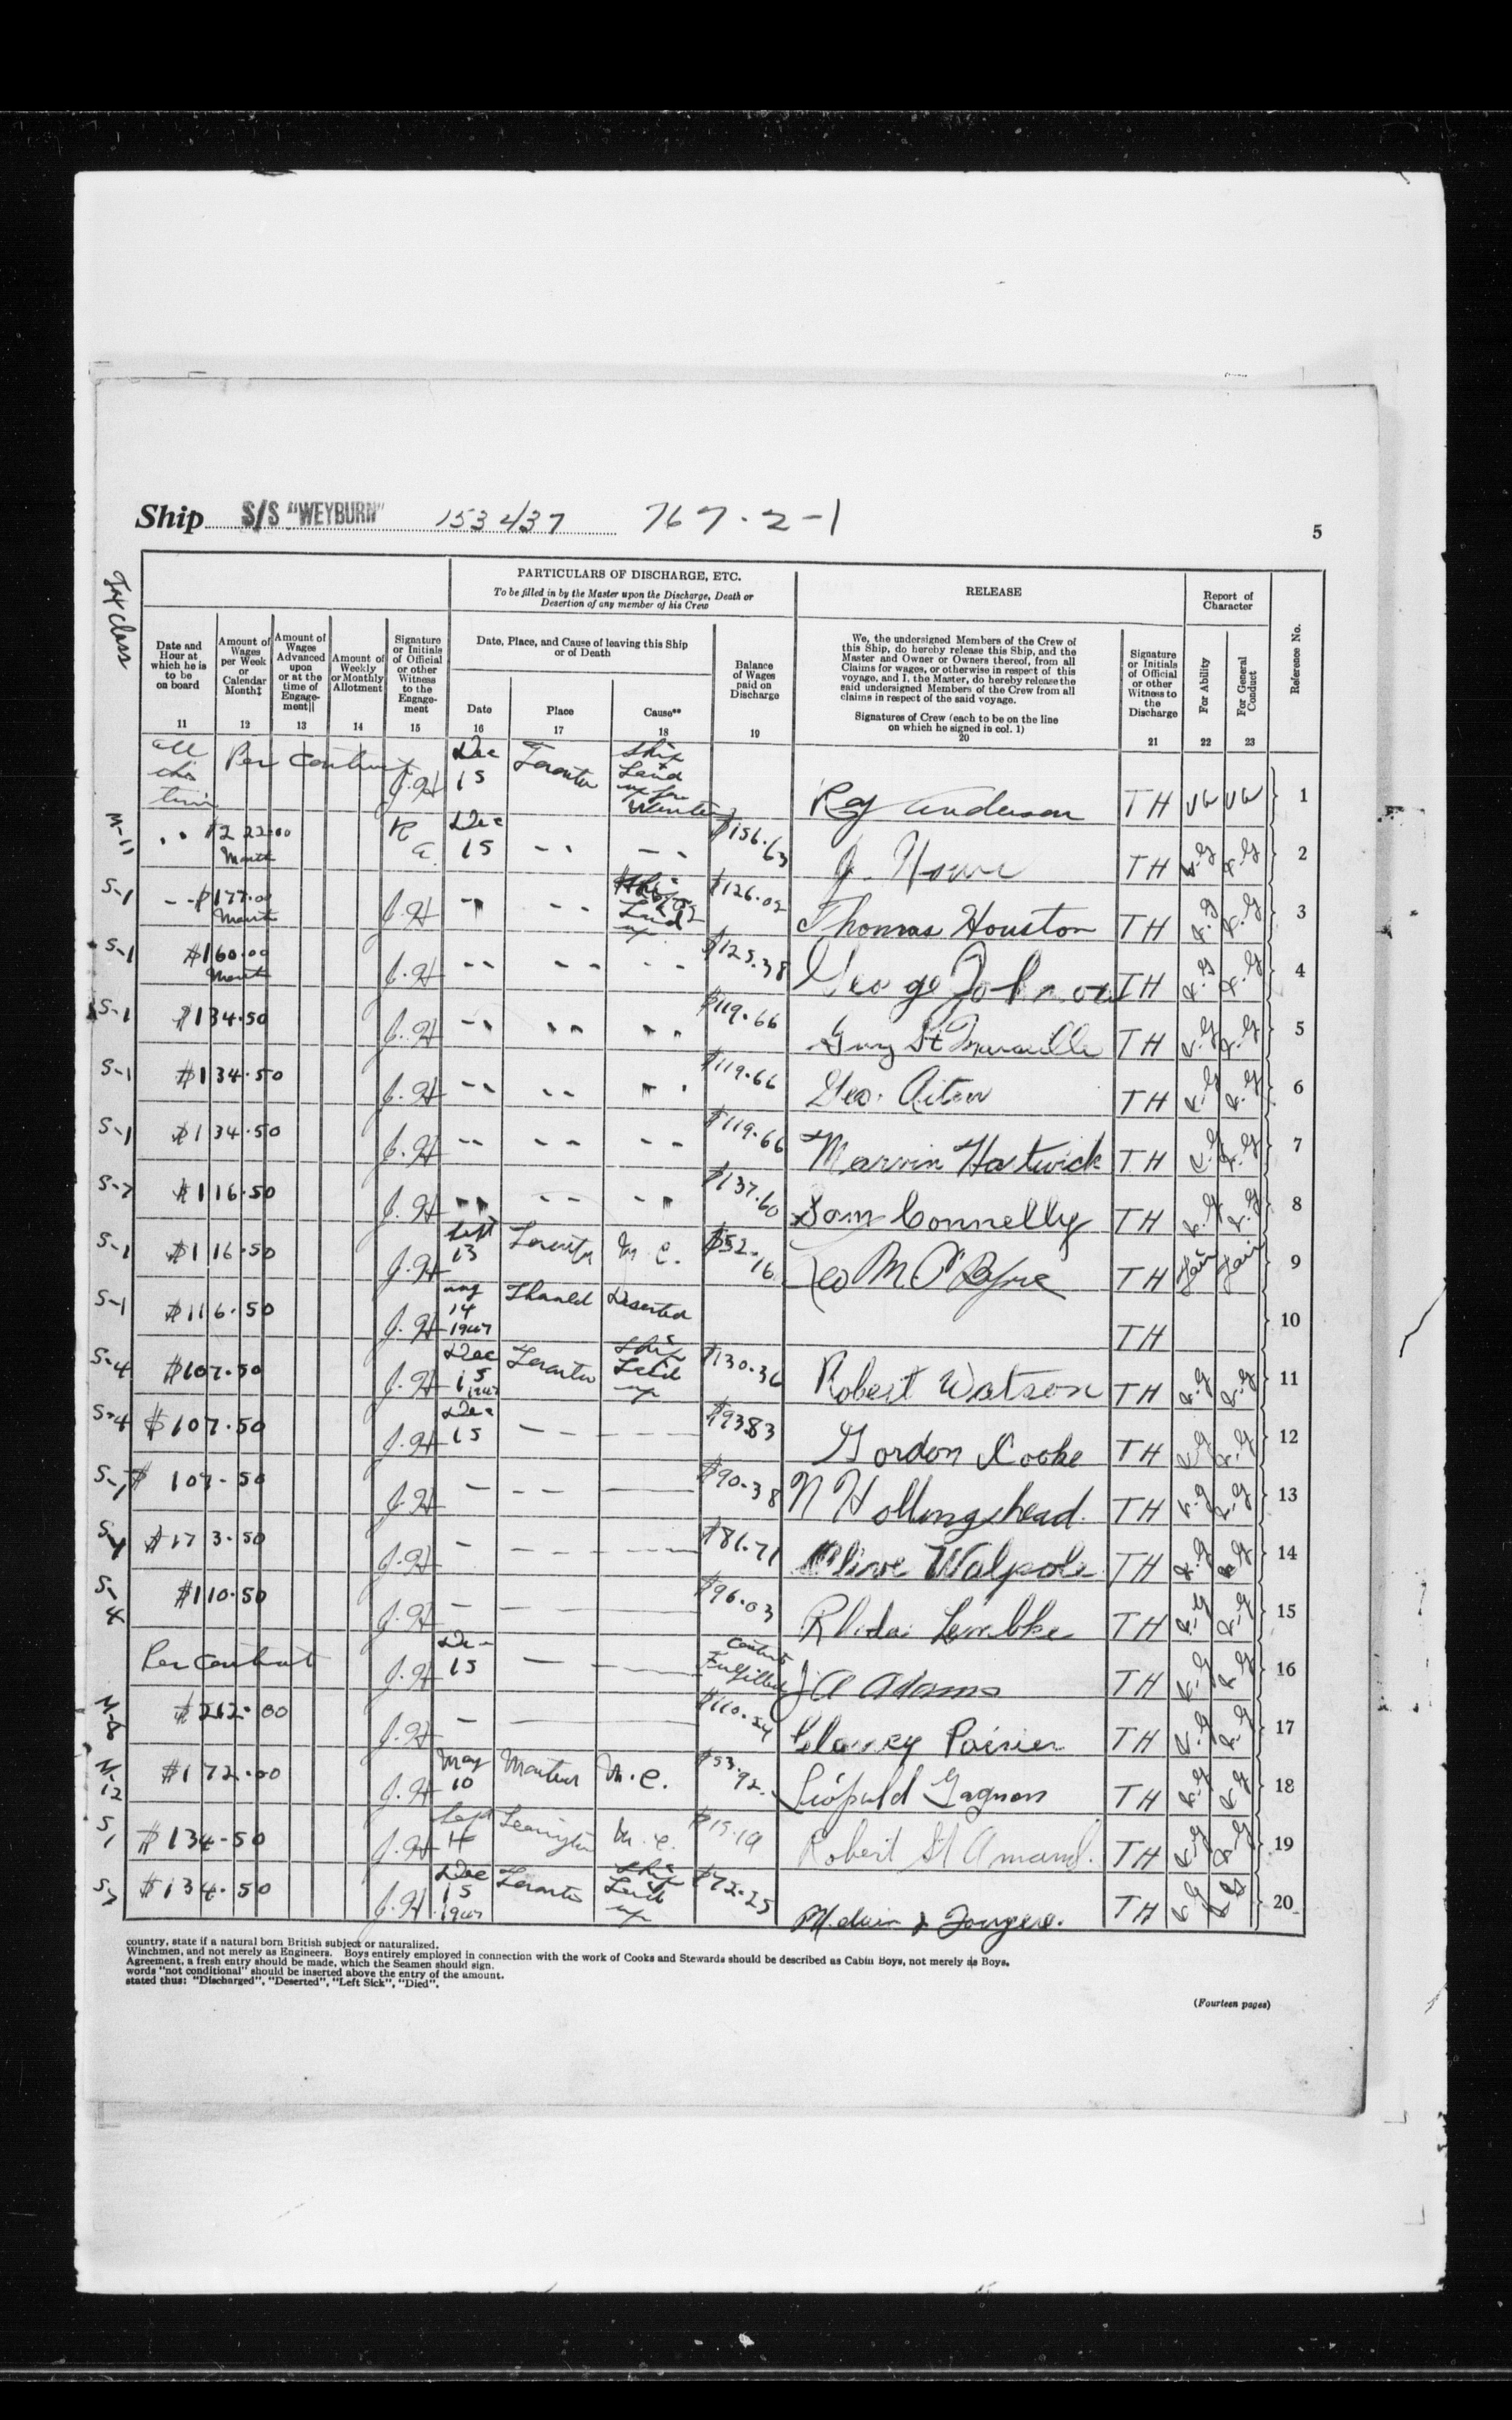 Ship S/S "WEYBURN" 153437 767-2-1
5
Tax class
PARTICULARS OF DISCHARGE, ETC.
To be filled in by the Master upon the Discharge, Death or
Desertion of any member of his Crew
RELEASE
Report of
Character
Reference No.
Date and
Hour at
which he is
to be
on board
11
Amount of
Wages
per Week
or
Calendar
Month‡
12
Amount of
Wages
Advanced
upon
or at the
time of
Engage-
ment||
13
Amount of
Weekly
or Monthly
Allotment
14
Signature
or Initials
of Official
or other
Witness
to the
Engage-
ment
15
Date, Place, and Cause of leaving this Ship
or of Death
Date
16
Place
17
Cause**
18
Balance
of Wages
paid on
Discharge
19
We, the undersigned Members of the Crew of
this Ship, do hereby release this Ship, and the
Master and Owner or Owners thereof, from all
Claims for wages, or otherwise in respect of this
voyage, and I, the Master, do hereby release the
said undersigned Members of the Crew from all
claims in respect of the said voyage.
Signatures of Crew (each to be on the line
on which he signed in col. 1)
20
Signature
or Initials
of Official
or other
Witness to
the
Discharge
21
For Ability
22
For General
Conduct
23
all this time Per contract J.H Dec 15 Toronto Ship Laid up for Winter Roy Anderson TH VG VG 1
M-11 " $222.00 Month R A. Dec 15 " " $156.63 J. Howe TH V.G V.G 2
S-1 " $177.00 Month J.H " " Laid up $126.02 Thomas Houston TH V.G V.G 3
S-1 $160.00 Month J.H " " " $125.38 George Johnson TH V.G V.G 4
S-1 $134.50 J.H " " " $119.66 Guy St TH V.G V.G 5
S-1 $134.50 J.H " " " $119.66 Geo. Aitken TH V.G V.G 6
S-1 $134.50 J.H " " " $119.66 Marvin Hartwick TH V.G V.G 7
S-7 $116.50 J.H " " " $137.60 Sam Connelly TH V.G V.G 8
S-1 $116.50 J.H Sept 13 Toronto M.C. $52.16 Leo M. O'Byrne TH Fair Fair 9
S-1 $116.50 J.H Aug 14 1947 Thorold Deserted TH 10
S-4 $107.50 J.H Dec 15 1947 Toronto Ship Laid up $130.36 Robert Watson TH V.G V.G 11
S-4 $107.50 J.H Dec 15 — — $93.83 Gordon Cooke TH V.G V.G 12
S-1 $107.50 J.H — — — $90.38 N Hollingshead. TH V.G V.G 13
S-4 $173.50 J.H — — — $86.71 Olive Walpole TH V.G V.G 14
S-4 $110.50 J.H — — — $96.03 Rhoda Lembke TH V.G V.G 15
Per contract J.H Dec 15 — — Contract Fulfilled J. A Adams TH V.G V.G 16
M-6 $212.00 J.H — — $110.54 Clancey Poirier TH V.G V.G 17
M-12 $172.00 J.H May 10 Montreal M.C. $53.92 Léopold Gagnon TH V.G V.G 18
S-1 $134.50 J.H Sept 4 Leamington M.C. $15.19 Robert St Amand. TH V.G V.G 19
S-7 $134.50 J.H. Dec 15 1947 Toronto Ship Laid up $72.25 TH V.G V.G 20
country, state if a natural born British subject or naturalized.
Winchmen, and not merely as Engineers. Boys entirely employed in connection with the work of Cooks and Stewards should be described as Cabin Boys, not merely as Boys.
Agreement, a fresh entry should be made, which the Seamen should sign.
words "not conditional" should be inserted above the entry of the amount.
stated thus: "Discharged", "Deserted", "Left Sick", "Died".
(Fourteen pages)